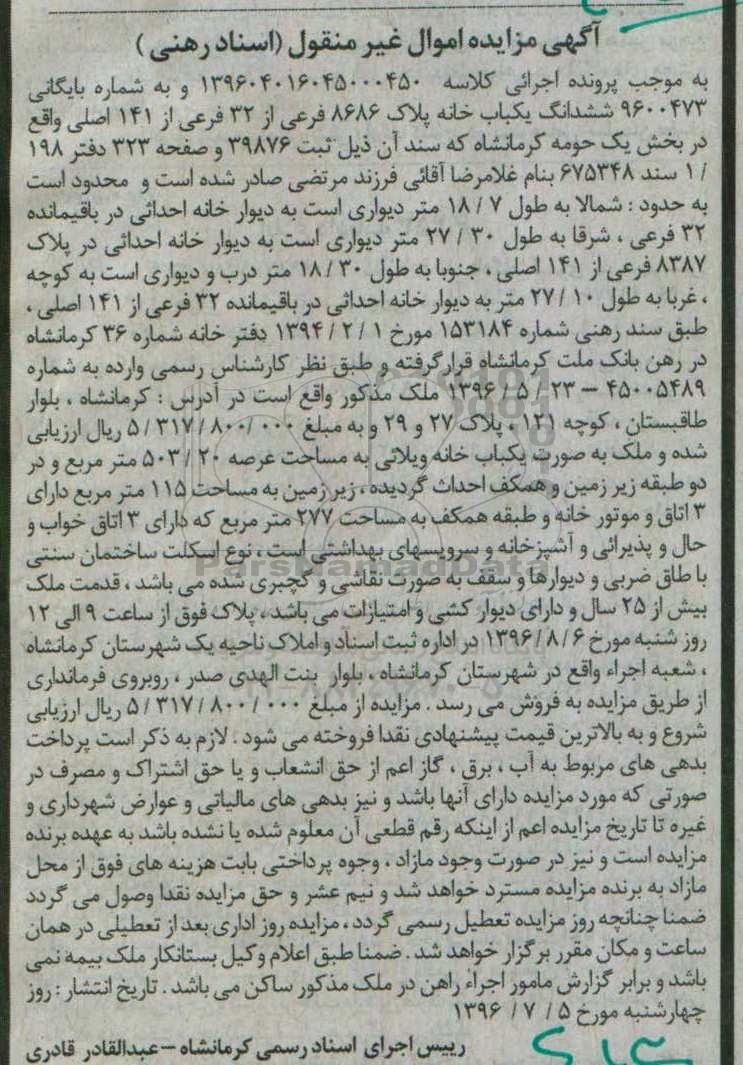 آگهی مزایده اموال غیر منقول (اسناد رهنی)
به موجب پرونده اجرائی کلاسه ۱۳۹۶۰۴۰۱۶۰۴۵۰۰۰۴۵۰ و به شماره بایگانی
۹۶۰۰۴۷۳ ششدانگ یکباب خانه پلاک ۸۶۸۶ فرعی از ۳۲ فرعی از ۱۴۱ اصلی واقع
در بخش یک حومه کرمانشاه که سند آن ذیل ثبت ۳۹۸۷۶ و صفحه ۳۲۳ دفتر ۱۹۸
/ ۱ سند ۶۷۵۳۴۸ بنام غلامرضا آقائی فرزند مرتضی صادر شده است و محدود است
به حدود : شمالا به طول ۷ / ۱۸ متر دیواری است به دیوار خانه احداثی در باقیمانده
۳۲ فرعی ، شرقا به طول ۳۰ / ۲۷ متر دیواری است به دیوار خانه احداثی در پلاک
۸۳۸۷ فرعی از ۱۴۱ اصلی ، جنوبا به طول ۳۰ / ۱۸ متر درب و دیواری است به کوچه
، غربا به طول ۱۰ / ۲۷ متر به دیوار خانه احداثی در باقیمانده ۳۲ فرعی از ۱۴۱ اصلی ،
طبق سند رهنی شماره ۱۵۳۱۸۴ مورخ ۱ / ۲ / ۱۳۹۴ دفتر خانه شماره ۳۶ کرمانشاه
در رهن بانک ملت کرمانشاه قرار گرفته و طبق نظر کارشناس رسمی وارده به شماره
۴۵۰۰۵۴۸۹ – ۲۳ / ۵ / ۱۳۹۶ ملک مذکور واقع است در آدرس : کرمانشاه ، بلوار
طاقبستان ، کوچه ۱۲۱ ، پلاک ۲۷ و ۲۹ و به مبلغ ۰۰۰ / ۸۰۰ / ۳۱۷ / ۵ ریال ارزیابی
شده و ملک به صورت یکباب خانه ویلائی به مساحت عرصه ۲۰ / ۵۰۳ متر مربع و در
دو طبقه زیر زمین و همکف احداث گردیده ، زیر زمین به مساحت ۱۱۵ متر مربع دارای
۳ اتاق و موتور خانه و طبقه همکف به مساحت ۲۷۷ متر مربع که دارای ۳ اتاق خواب و
حال و پذیرائی و آشپزخانه و سرویسهای بهداشتی است ، نوع اسکلت ساختمان سنتی
با طاق ضربی و دیوارها و سقف به صورت نقاشی و گچبری شده می باشد ، قدمت ملک
بیش از ۲۵ سال و دارای دیوار کشی و امتیازات می باشد ، پلاک فوق از ساعت ۹ الی ۱۲
روز شنبه مورخ ۶ / ۸ / ۱۳۹۶ در اداره ثبت اسناد و املاک ناحیه یک شهرستان کرمانشاه
، شعبه اجراء واقع در شهرستان کرمانشاه ، بلوار بنت الهدی صدر ، روبروی فرمانداری
از طریق مزایده به فروش می رسد . مزایده از مبلغ ۰۰۰ / ۸۰۰ / ۳۱۷ / ۵ ریال ارزیابی
شروع و به بالاترین قیمت پیشنهادی نقدا فروخته می شود . لازم به ذکر است پرداخت
بدهی های مربوط به آب ، برق ، گاز اعم از حق انشعاب و یا حق اشتراک و مصرف در
صورتی که مورد مزایده دارای آنها باشد و نیز بدهی های مالیاتی و عوارض شهرداری و
غیره تا تاریخ مزایده اعم از اینکه رقم قطعی آن معلوم شده یا نشده باشد به عهده برنده
مزایده است و نیز در صورت وجود مازاد ، وجوه پرداختی بابت هزینه های فوق از محل
مازاد به برنده مزایده مسترد خواهد شد و نیم عشر و حق مزایده نقدا وصول می گردد
ضمنا چنانچه روز مزایده تعطیل رسمی گردد ، مزایده روز اداری بعد از تعطیلی در همان
ساعت و مکان مقرر برگزار خواهد شد . ضمنا طبق اعلام وکیل بستانکار ملک بیمه نمی
باشد و برابر گزارش مامور اجراء راهن در ملک مذکور ساکن می باشد . تاریخ انتشار : روز
چهارشنبه مورخ ۵ / ۷ / ۱۳۹۶
رییس اجرای اسناد رسمی کرمانشاه – عبدالقادر قادری
ParsNamadData